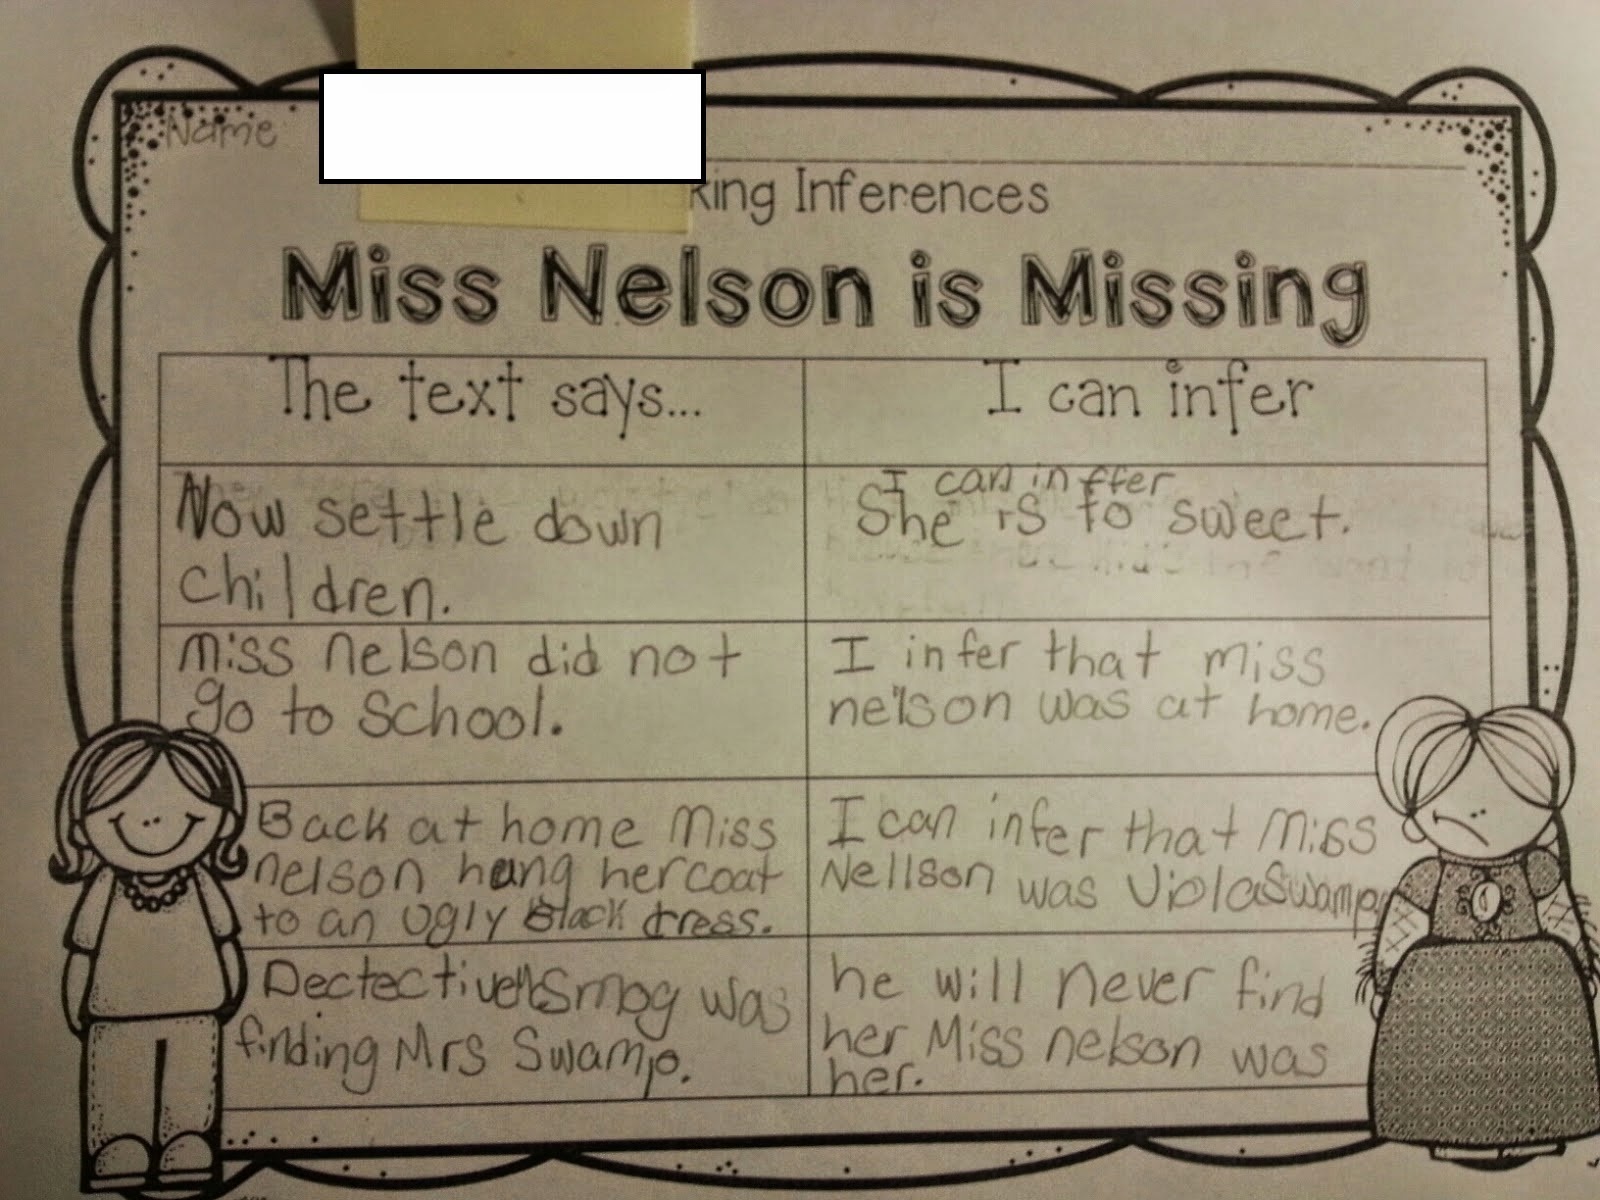 Name
king Inferences
Miss Nelson is Missing
The text says...
I can infer
Now settle down
children.
I can inffer
She is to sweet.
Miss nelson did not
go to School.
I infer that miss
nelson was at home.
Back at home Miss
nelson hang her coat
to an ugly Black dress.
I can infer that Miss
Nellson was Viola Swamp
Dectective Smog was
finding Mrs Swamp.
he will never find
her Miss nelson was
her.